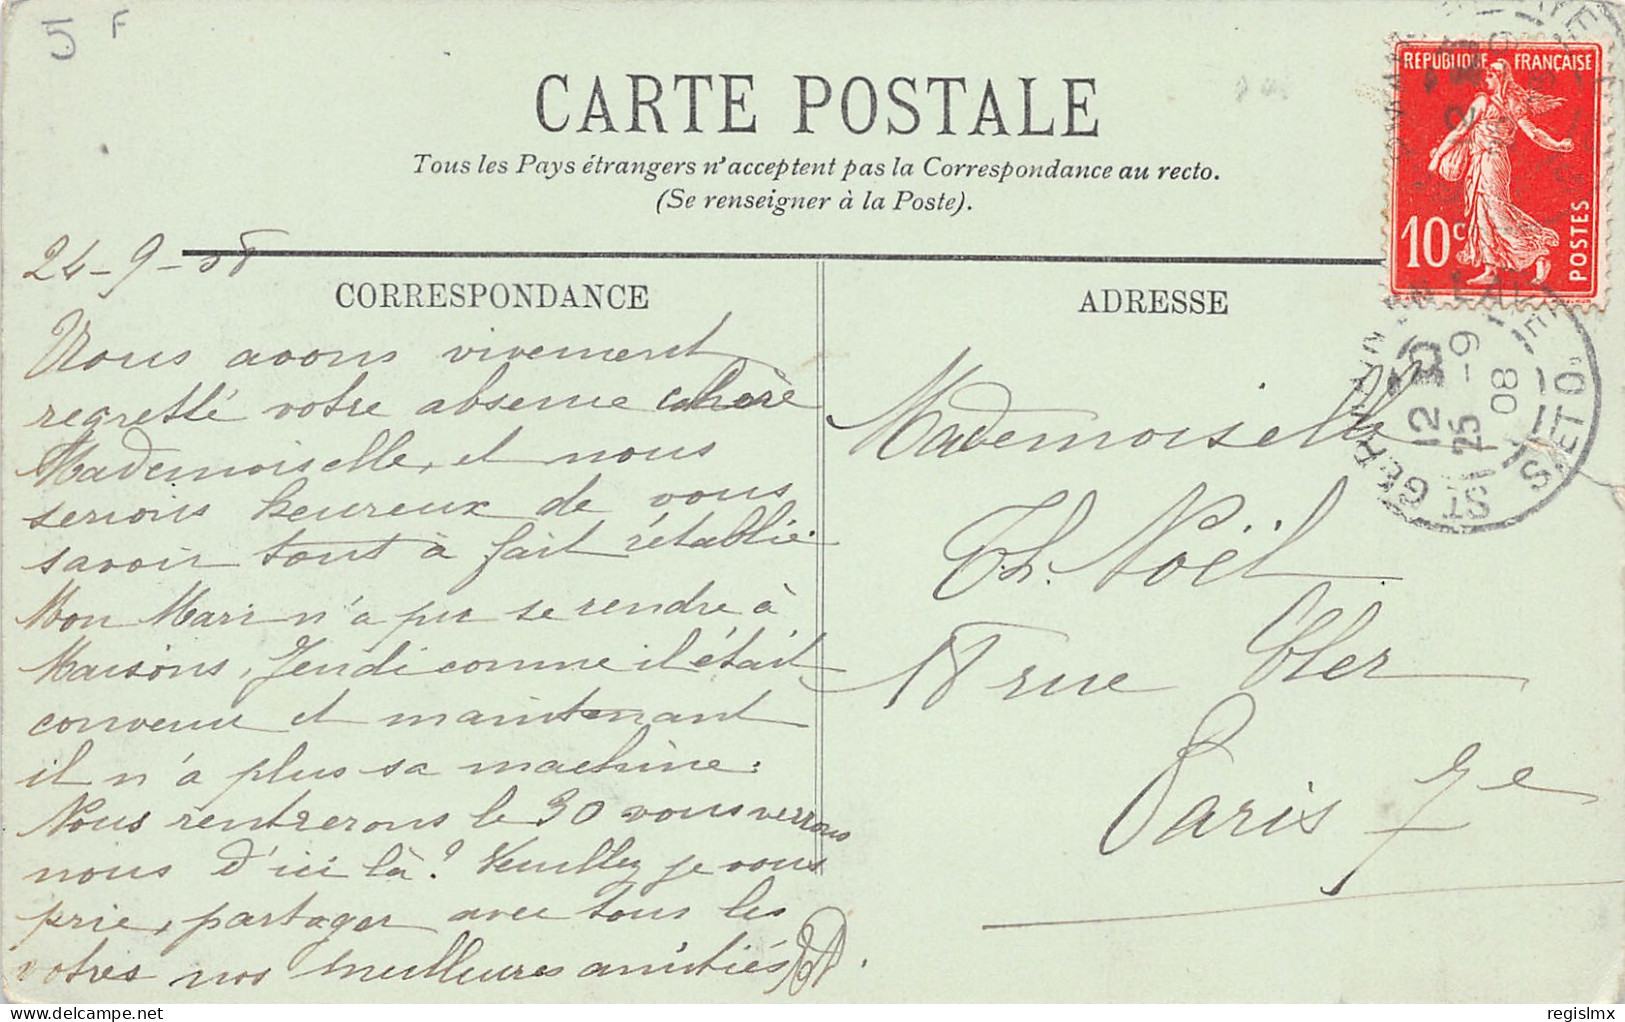 5 F
CARTE POSTALE
Tous les Pays étrangers n'acceptent pas la Correspondance au recto.
(Se renseigner à la Poste).
REPUBLIQUE FRANÇAISE
10c
POSTES
24-9-08
CORRESPONDANCE
Nous avons vivement
regretté votre absence chère
Mademoiselle, et nous
serions heureux de vous
savoir tout à fait rétablie.
Mon Mari n'a pu se rendre à
Maisons, Jeudi comme il était
convenu et maintenant
il n'a plus sa machine.
Nous rentrerons le 30 vous verrons
nous d'ici là? Veuillez je vous
prie, partager avec tous les
vôtres nos meilleures amitiés
ADRESSE
Mademoiselle
Th. Noël
18 rue Cler
Paris 7e
ST GERMAIN EN LAYE
S. ET O.
12
25 -9
08
regislmx